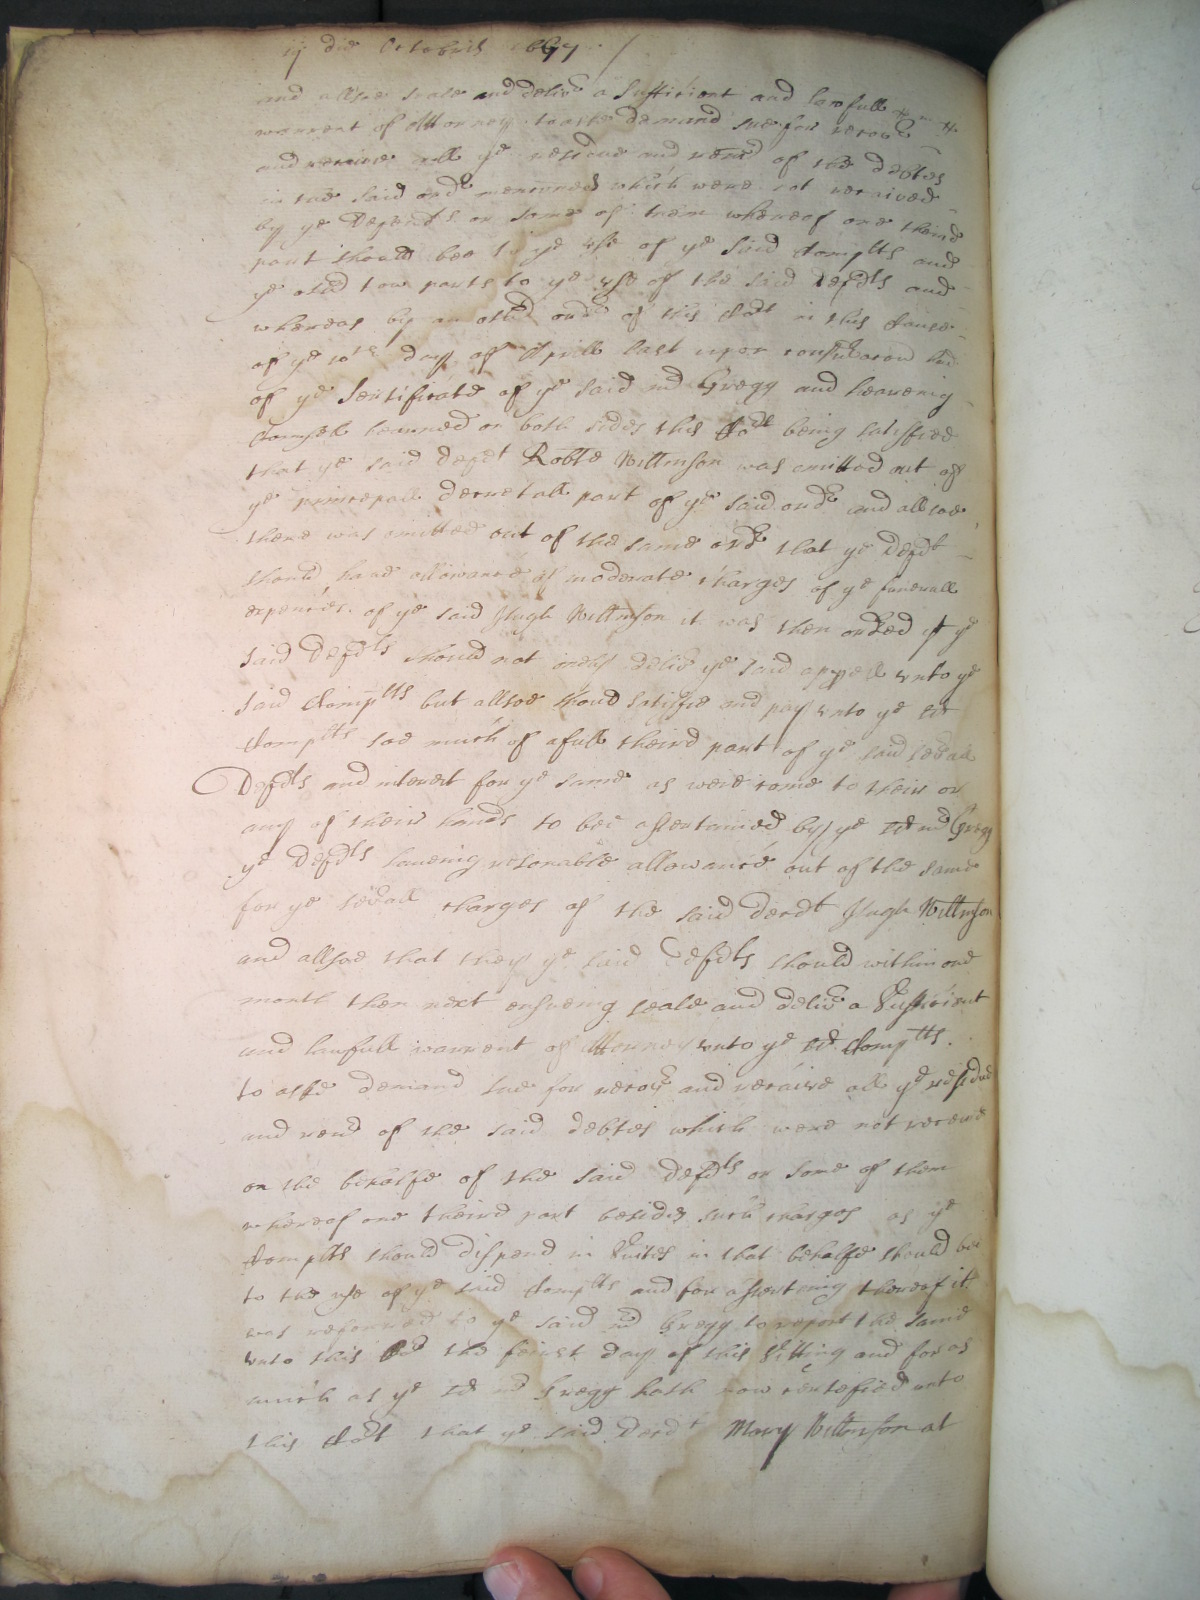 die Octobris
and allsoe seale and deliver a Sufficient and lawfull
warrent of Attorney to aske demand sue for recover
and receive all ye residue and rend of the debtes
in the said ordr mencioned which were not received
by ye Defendts or some of them whereof one theird
part should bee to ye use of ye said Complts and
ye other tow parts to ye use of the said Defdts and
whereas by an other ordr of this Cort in this Cause
of ye 10th day of Aprill last upon consideracon had
of ye Sertificate of ye said mr Gregg and heareing
Counsell learned on both sides this Cort being satisfied
that ye said Defdt Robte Wilkinson was omitted out of
ye principall decretall part of ye said ordr and allsoe
there was omitted out of the same ordr that ye Defdts
should have allowance of moderate charges of ye funerall
expencies of ye said Hugh Wilkinson it was then ordred yt ye
said Defdts should not onely deliver ye said unto ye
said Complts but allsoe should satisfie and pay unto ye sd
Complts soe much of a full theird part of ye said severall
Defdts and interest for ye same as were come to their or
any of their hands to bee assertained by ye sd mr Gregg
ye Defdts haveing resonable allowance out of the same
for ye severall charges of the said decedt Hugh Wilkinson
and allsoe that they ye said Defdts should within one
month then next ensueing seale and deliver a Sufficient
and lawfull warrent of Atterney unto ye sd Complts
to aske demand sue for recover and receive all ye residue
and rend of the said debtes which were not receive
on the behalfe of the said Defdts or some of them
whereof one theird part besides such charges as ye
Complts should dispend in Suites in that behalfe should bee
to the use of ye said Complts and for assertening thereof it
was referred to ye said mr Gregg to report the same
unto this Cort the first day of this Sitting and for as
much as ye sd mr Gregg hath now certefied unto
this Cort that ye said Mary Wilkinson at